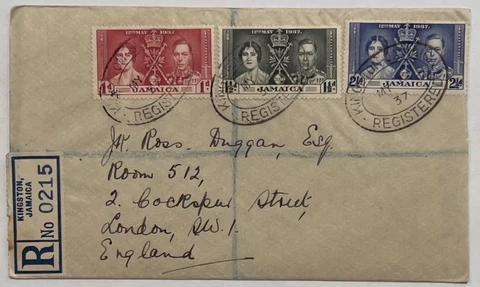 12TH MAY 1937.
1D
JAMAICA
1D
12TH MAY 1937.
1½D
JAMAICA
1½D
12TH MAY 1937.
2½D
JAMAICA
2½D
REGISTERED
REGISTERED
KINGSTON
MY
37
REGISTERED
W. Ross-Duggan, Esq.
Room 512,
2. Cockspur Street,
London, S.W.1.
England
KINGSTON,
JAMAICA
R No 0215